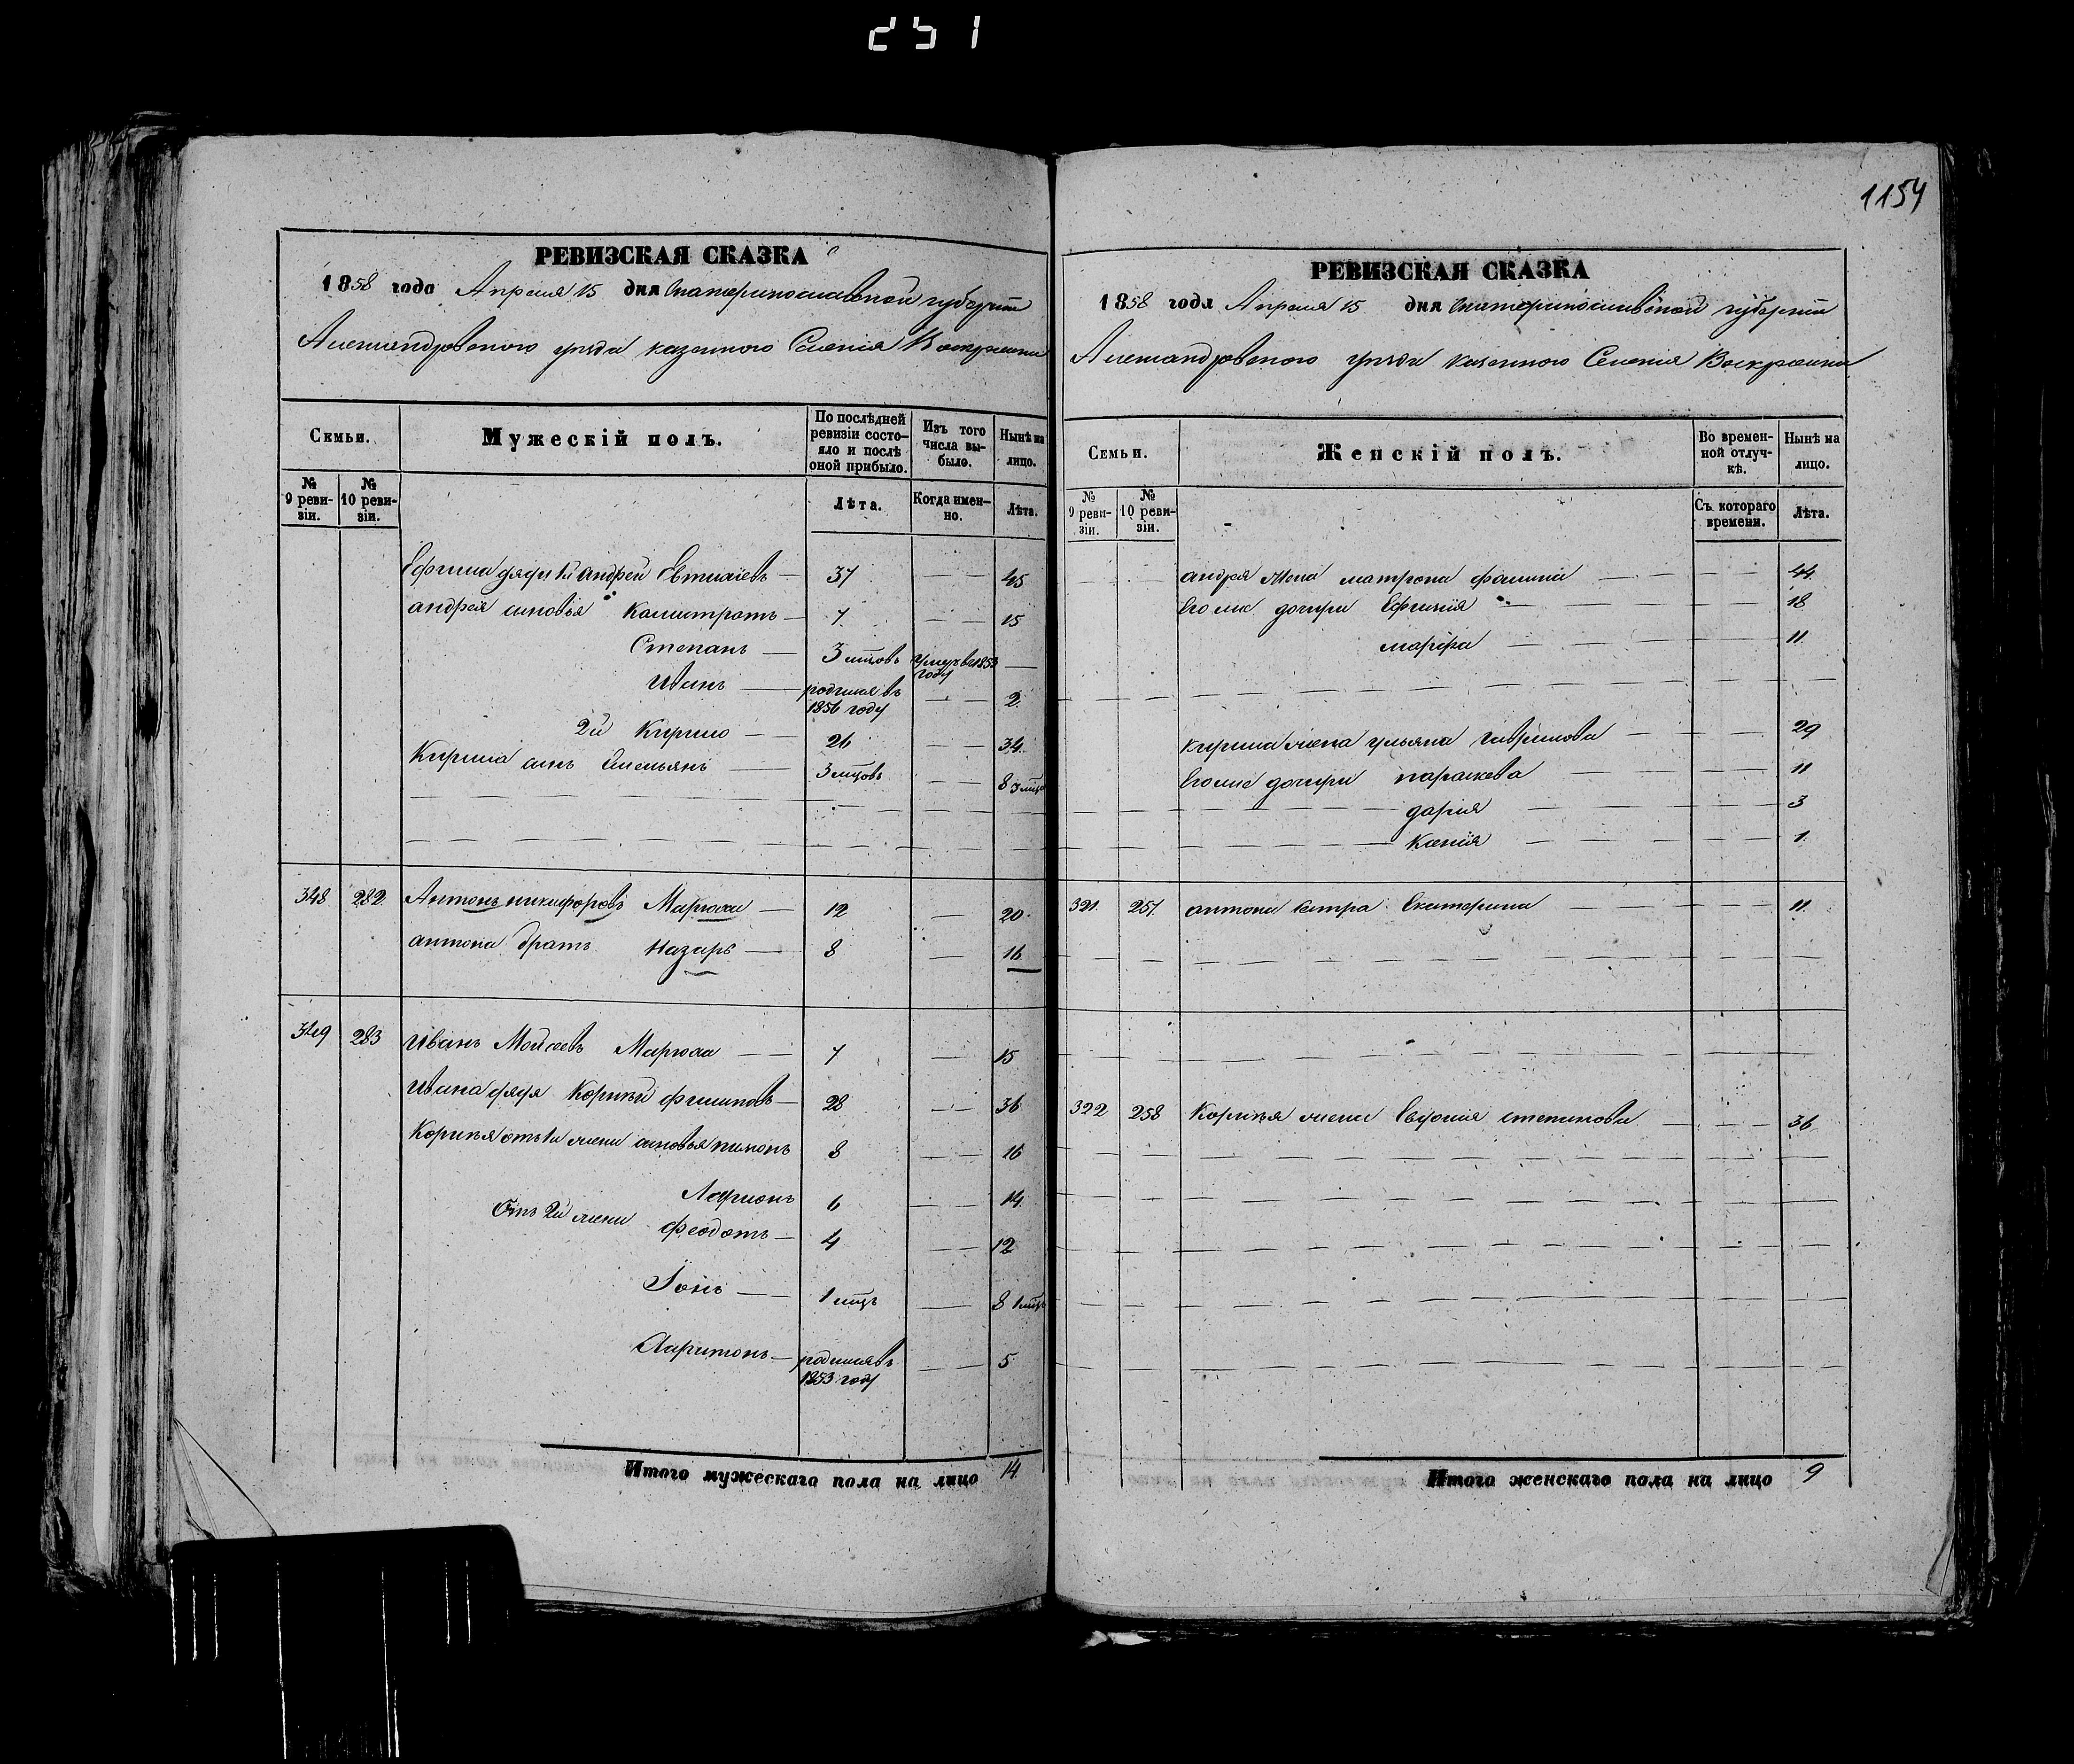 251
1154
РЕВИЗСКАЯ СКАЗКА
1858 года Апреля 15 дня Екатеринославской губернии
Александровского уезда казенного Селенія Воскресенки
Семьи.
Мужескій полъ.
По послѣдней ревизіи состояло и послѣ оной прибыло.
Изъ того числа выбыло.
Нынѣ на лицо.
№ 9 ревизіи.
№ 10 ревизіи.
Лѣта.
Когда именно.
Лѣта.
Ефима дядя 1й андрей Евтихіевъ — 37 — — 45
андрея сыновья Калистратъ — 7. — — 15
Степанъ — 3 мцовъ Умеръ в 1853 году —
Иванъ — родился въ 1856 году — — 2.
2й Кирило — 26 — — 34.
Кирила сынъ Емельянъ — 3 мцовъ — — 8 3 мцв
348 282. Антонъ никифоровъ Марюха — 12 — 20.
антона братъ Назаръ — 8 — 16
349 283 Иванъ Мойсеевъ Марюха — — 7 — 15
Ивана дядя Корнѣй филиповъ — 28 — — 36
Корнѣя отъ 1й жены сыновья пимонъ 8 — — 16
Ларионъ 6 — — 14.
Отъ 2й жены Феодотъ — 4 — — 12
Іонъ — — 1 мцъ — 8 1 мцъ
Харитонъ — родился въ 1853 году — — 5
Итого мужескаго пола на лицо 14.
РЕВИЗСКАЯ СКАЗКА
1858 года Апреля 15 дня Екатеринославской губернии
Александровского уезда казенного Селенія Воскресенки
Семьи.
Женскій полъ.
Во временной отлучкѣ.
Нынѣ на лицо.
№ 9 ревизіи.
№ 10 ревизіи.
Съ котораго времени.
Лѣта.
андрея жена матрона фомина — — — — 44.
Его же дочери Ефимія — — — — 18
марфа — — — — 11.
кирила жена ульяна гаврилова — — — — 29
Его же дочери параскева — — — — 11
дария — — — — 3
Ксенія — — — — 1.
321. 257. антона сестра Екатерина — — — — 11.
322 258 Корнѣя жена Евдокия степанова — — — 36
Итого женскаго пола на лицо 9